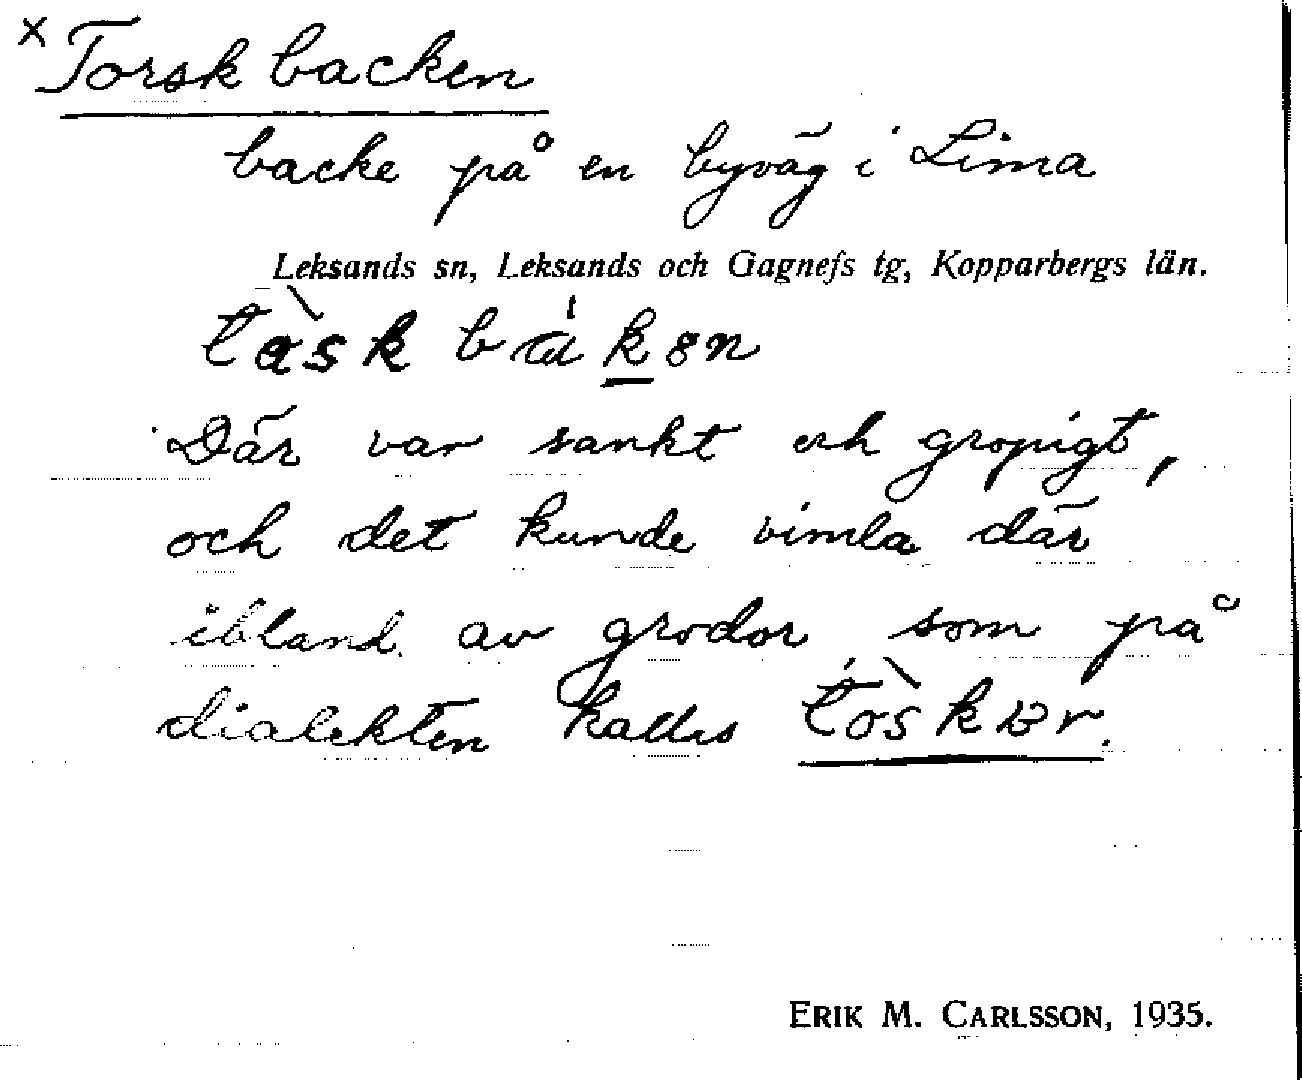 x Torskbacken
backe på en byväg i Lima
Leksands sn, Leksands och Gagnefs tg, Kopparbergs län.
Där var sankt och gropigt,
och det kunde vimla där
ibland av grodor som på
dialekten kallas
ERIK M. CARLSSON, 1935.